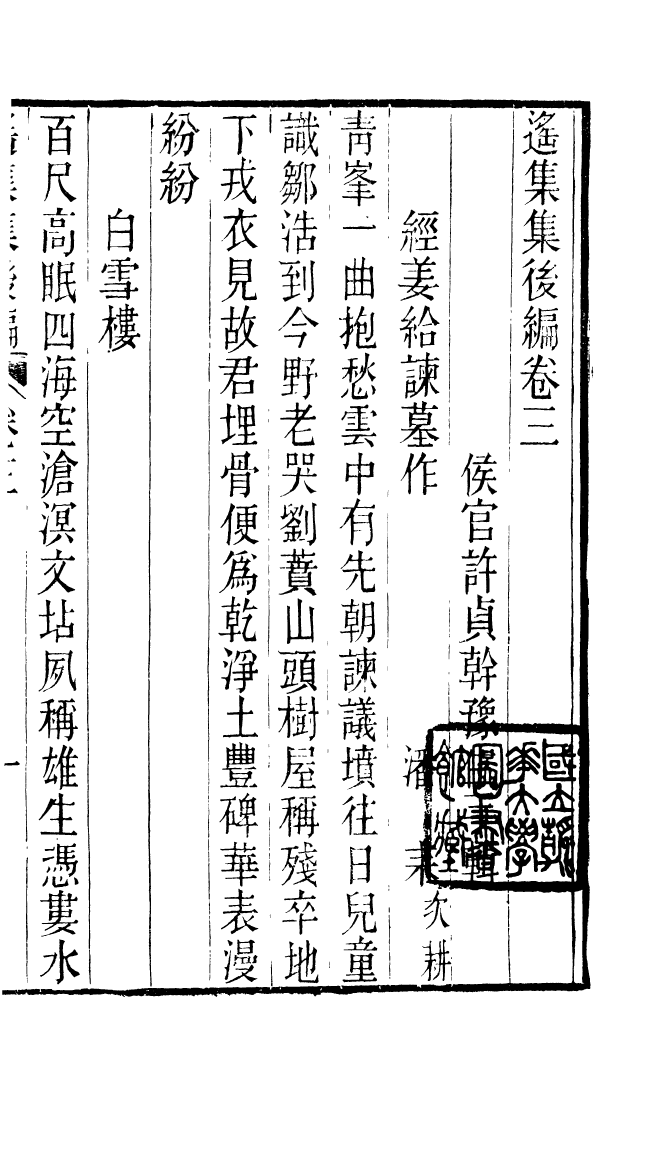 遙集集後編卷三
侯官許貞幹豫生輯
經姜給諫墓作　潘耒次耕
靑峯一曲抱愁雲中有先朝諫議墳往日兒童
識鄒浩到今野老哭劉蕡山頭樹屋稱殘卒地
下戎衣見故君埋骨便爲乾淨土豐碑華表漫
紛紛
白雪樓
百尺高眠四海空滄溟文坫夙稱雄生憑婁水
集集後編　卷三　一
國立清華大學圖書館藏